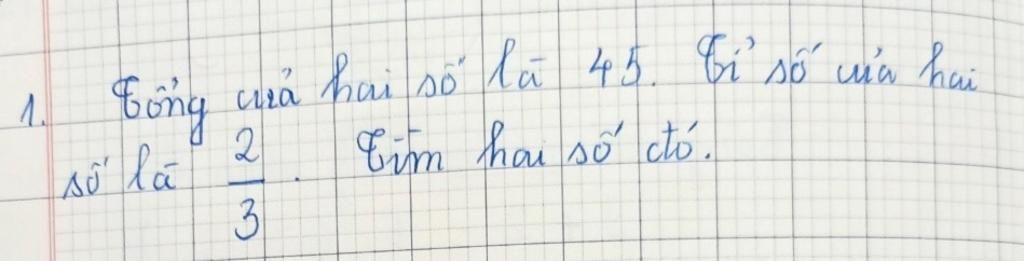 1. Tổng của hai số là 45. Tỉ số của hai
số là 2/3. Tìm hai số đó.